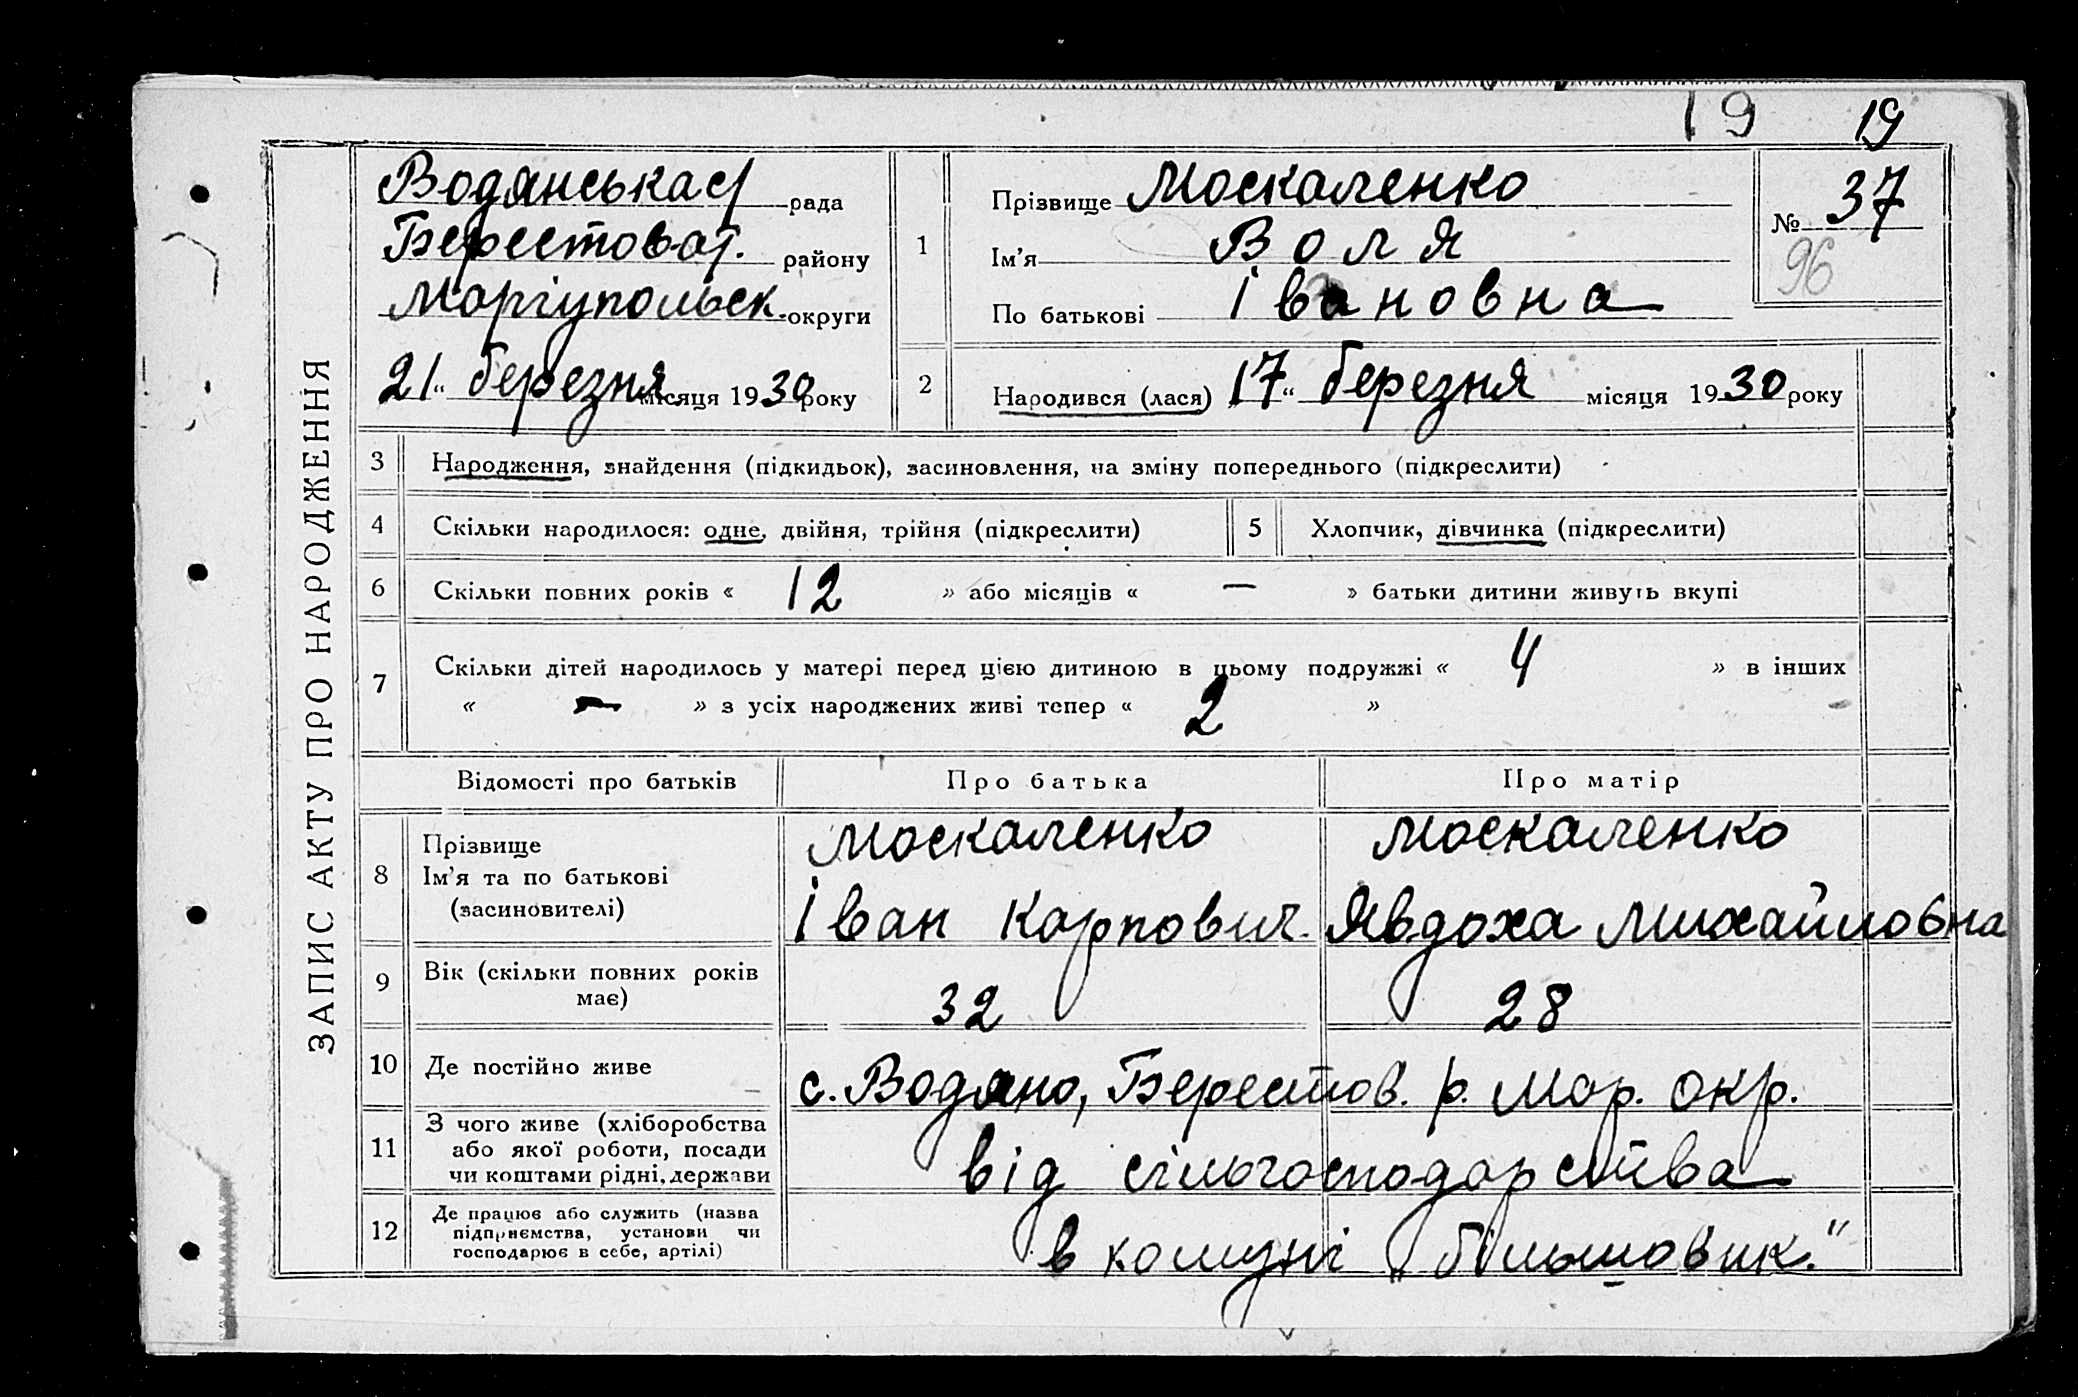 19 19
ЗАПИС АКТУ ПРО НАРОДЖЕННЯ
Водянська с/ рада
Берестоват. району
Маріупольськ. округи
21 " березня місяця 1930 року
1
Прізвище Москаленко
Ім'я Воля
По батькові Івановна
№ 37
96
2 Народився (лася) 17 " березня місяця 1930 року
3 Народження, знайдення (підкидьок), засиновлення, на зміну попереднього (підкреслити)
4 Скільки народилося: одне, двійня, трійня (підкреслити)
5 Хлопчик, дівчинка (підкреслити)
6 Скільки повних років « 12 » або місяців « — » батьки дитини живуть вкупі
7 Скільки дітей народилось у матері перед цією дитиною в цьому подружжі « 4 » в інших
« — » з усіх народжених живі тепер « 2 »
Відомості про батьків Про батька Про матір
8 Прізвище
Ім'я та по батькові
(засиновителі)
Москаленко
Іван Карпович.
Москаленко
Явдоха Михайловна
9 Вік (скільки повних років
має)
32 28
10 Де постійно живе с. Водяно, Берестов. р. Мар. окр.
11 З чого живе (хліборобства
або якої роботи, посади
чи коштами рідні, держави
від сільгосподарства
12 Де працює або служить (назва
підприємства, установи чи
господарює в себе, артілі)
в комуні „більшовик."